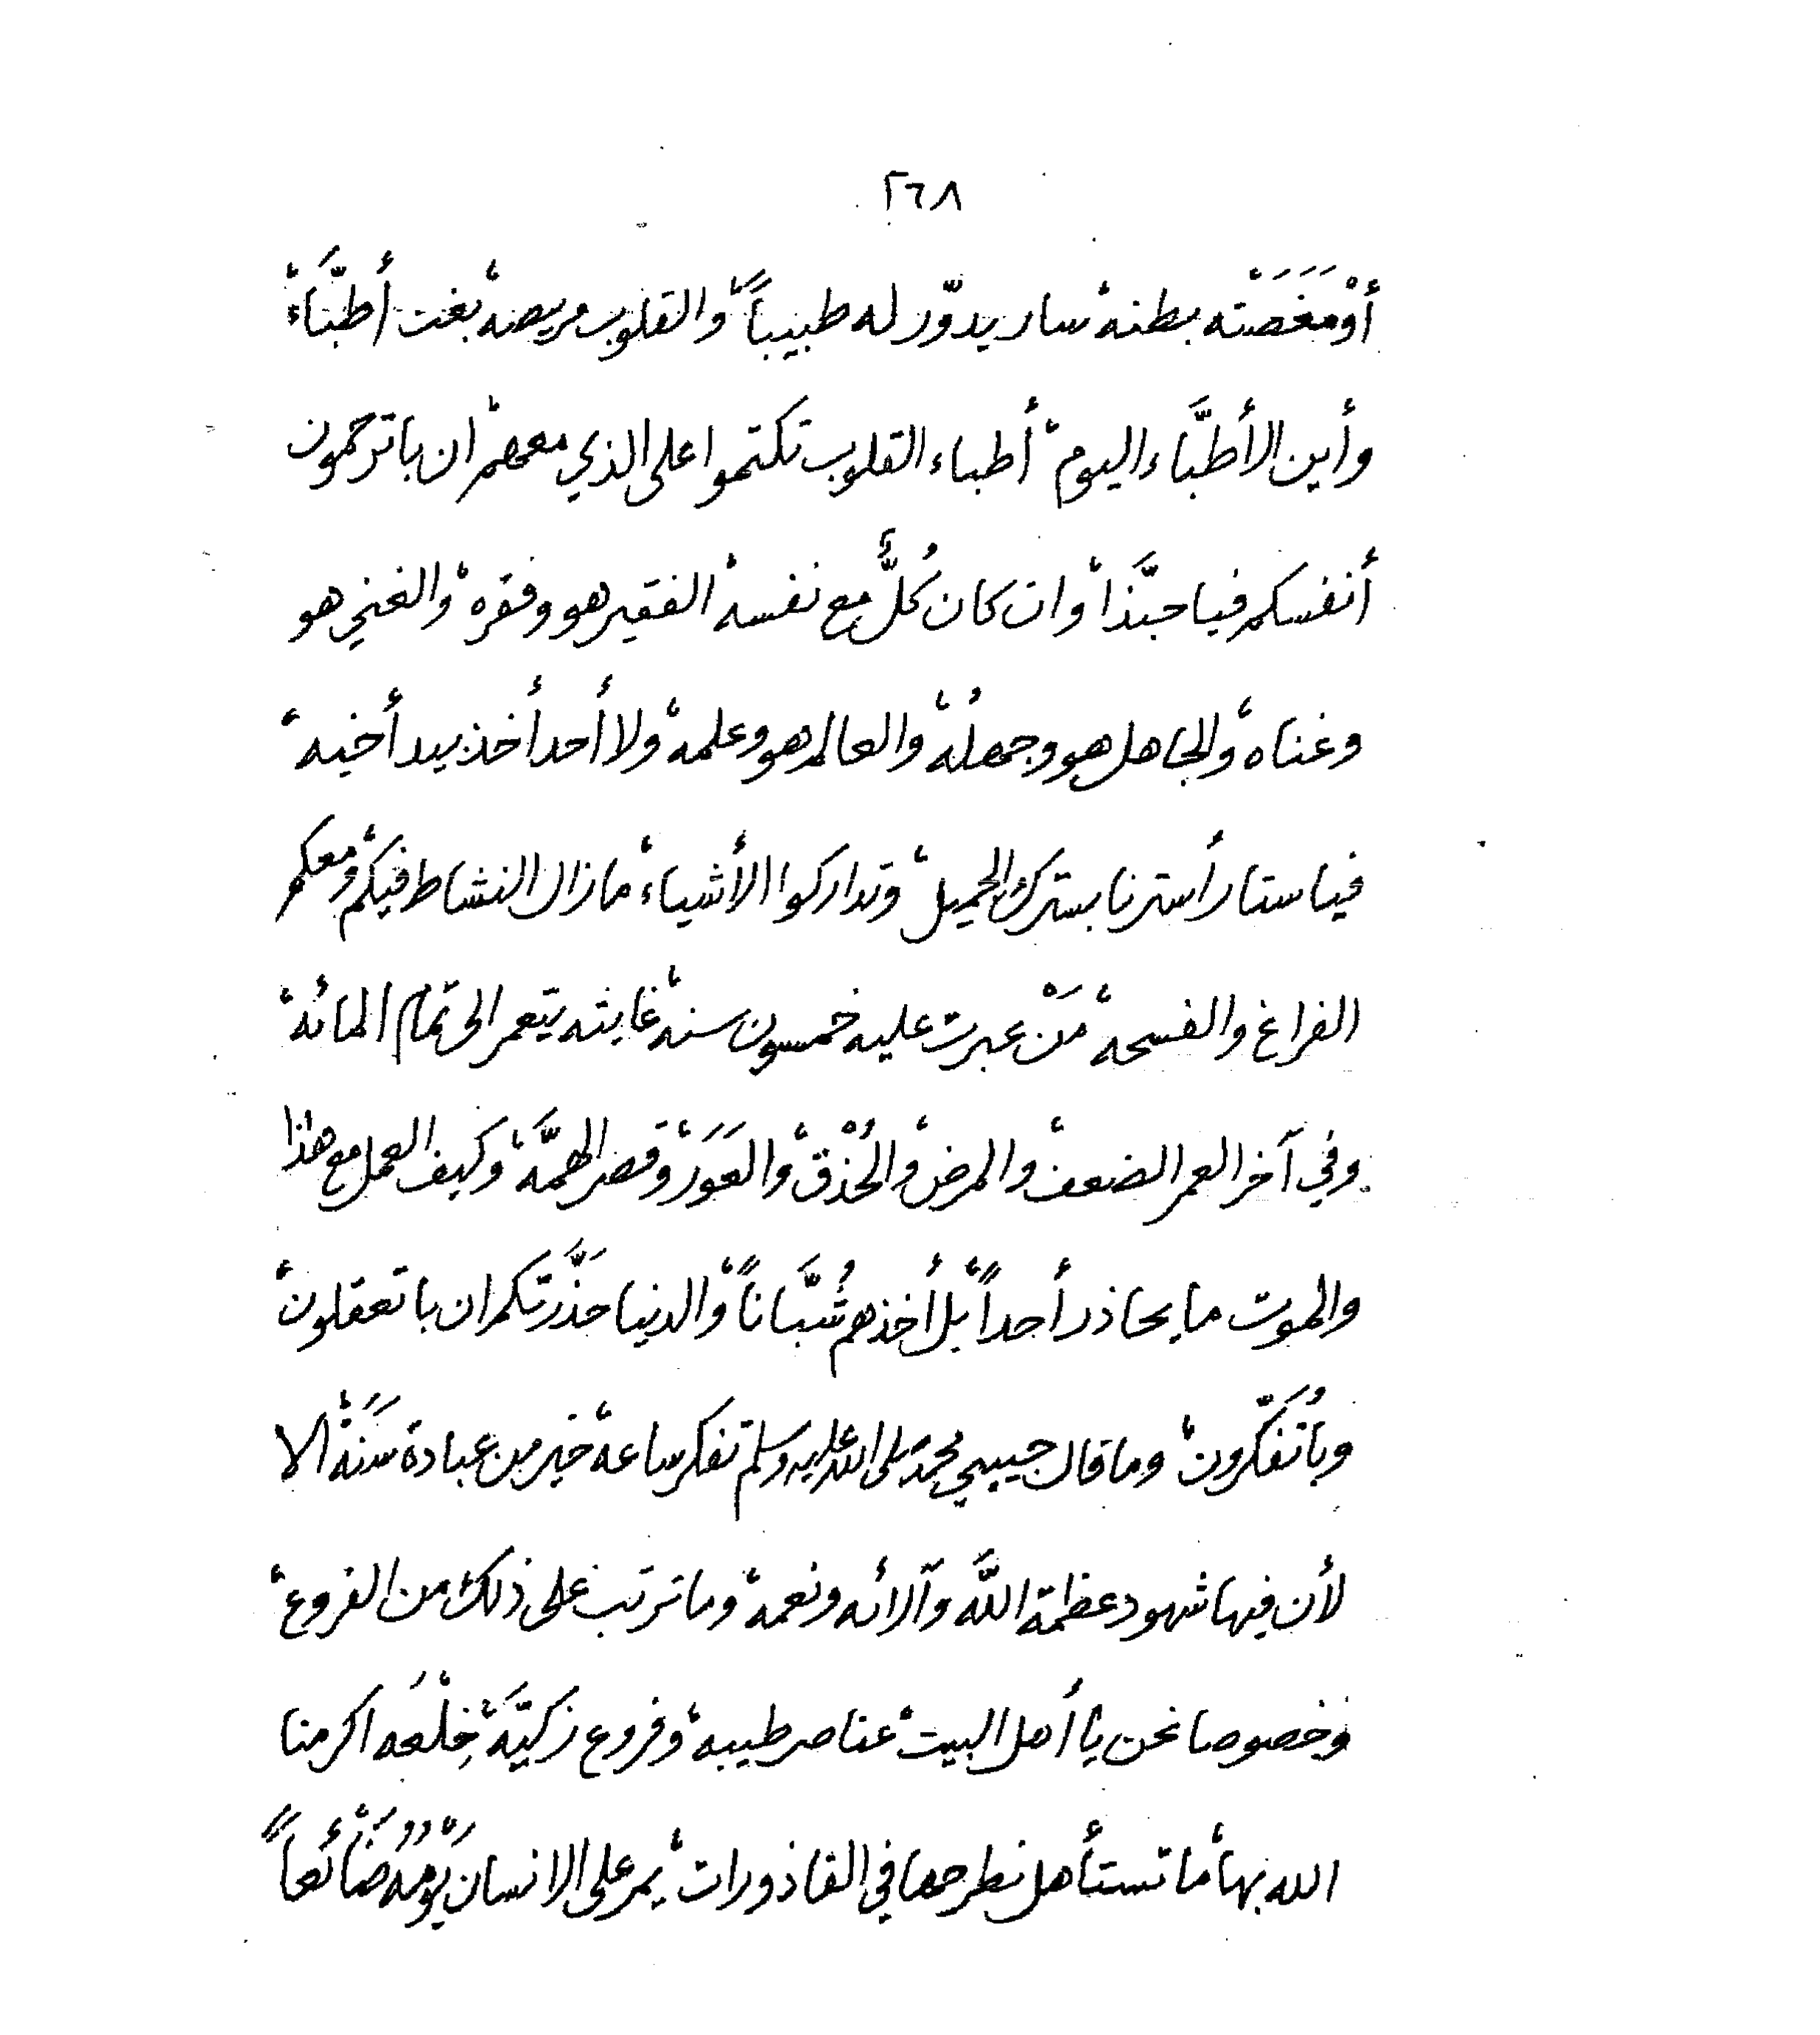 ٢٦٨
أوْ مَغَصَتْه بطنه، سار يدوّر له طبيباً، والقلوب مريضه، بغت أطبَّاء،
وأين الأطبَّاء اليوم، أطباء القلوب تكتموا على الذي معهم، ان باترحمون
أنفسكم فيا حبَّذا، وان كان كُلٌّ مع نفسه، الفقير هو وفقره، والغني هو
وغناه، والجاهل هو وجهلُه، والعالم هو وعلمه، ولا أحد أخذ بيد أخيه،
فيا ستار أسترنا بسترك الجميل، وتداركوا الأشياء، مازال النشاط فيكم، ومعكم
الفراغ والفسحه، مَنْ عبرت عليه خمسون سنه، غايته يتعمر الى تمام المائه،
وفي آخر العمر الضعف، والمرض، والحُذْق، والعَوَر، وقصر الهمَّه، وكيف العمل مع هذا
والموت ما يحاذر أحداً، بل أخذهم شُبَّاناً، والدنيا حَذَّرتكم ان باتعقلون،
وباتُفَكّرون، وما قال حبيبي محمد صلى الله عليه وسلم تفكر ساعه، خير من عبادة سَنَة، الا
لأن فيها شهود عظمة اللَّه وآلائه ونعمه، وما ترتب على ذلك من الفروع،
وخصوصا نحن يا أهل البيت، عناصر طيبه، وفروع زكيَّه، خِلْعَه اكرمنا
الله بها، ما تستأهل نطرحها في القاذورات، يمر على الانسان يَوْمُهُ ضَائعاً،